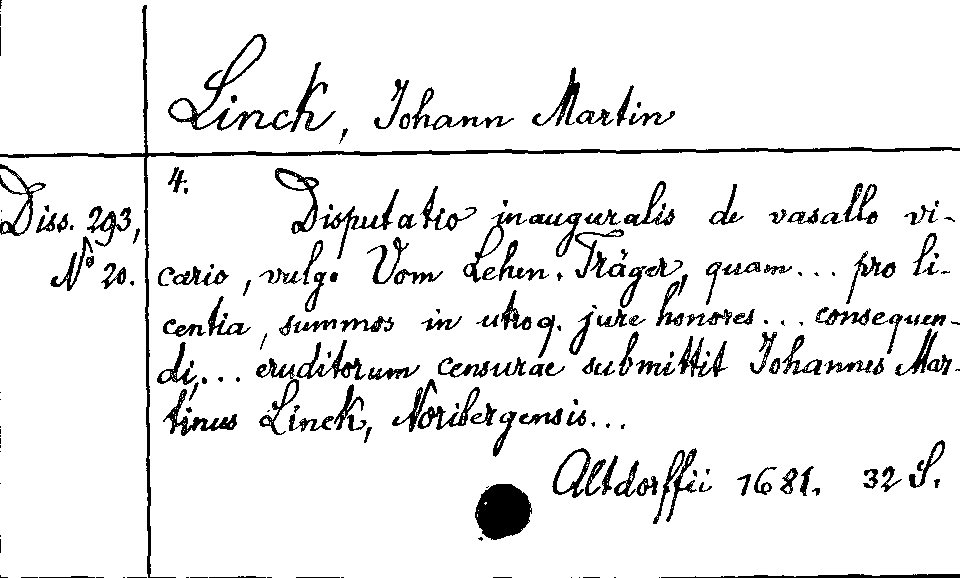 Linck, Johann Martin
4.
Diss. 293,
No 20.
Disputatio inauguralis de vasallo vi-
cario, vulg. Vom Lehen-Träger, quam... pro li-
centia, summos in utroq. jure honores... consequen-
di,... eruditorum censurae submittit Johannes Mar-
tinus Linck, Noribergensis...
Altdorffii 1681. 32 S.